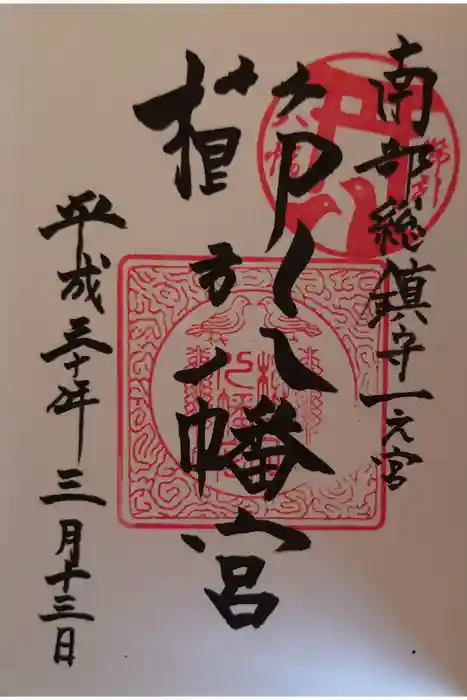 南部総鎮守一之宮
櫛引八幡宮
平成三十年三月十三日